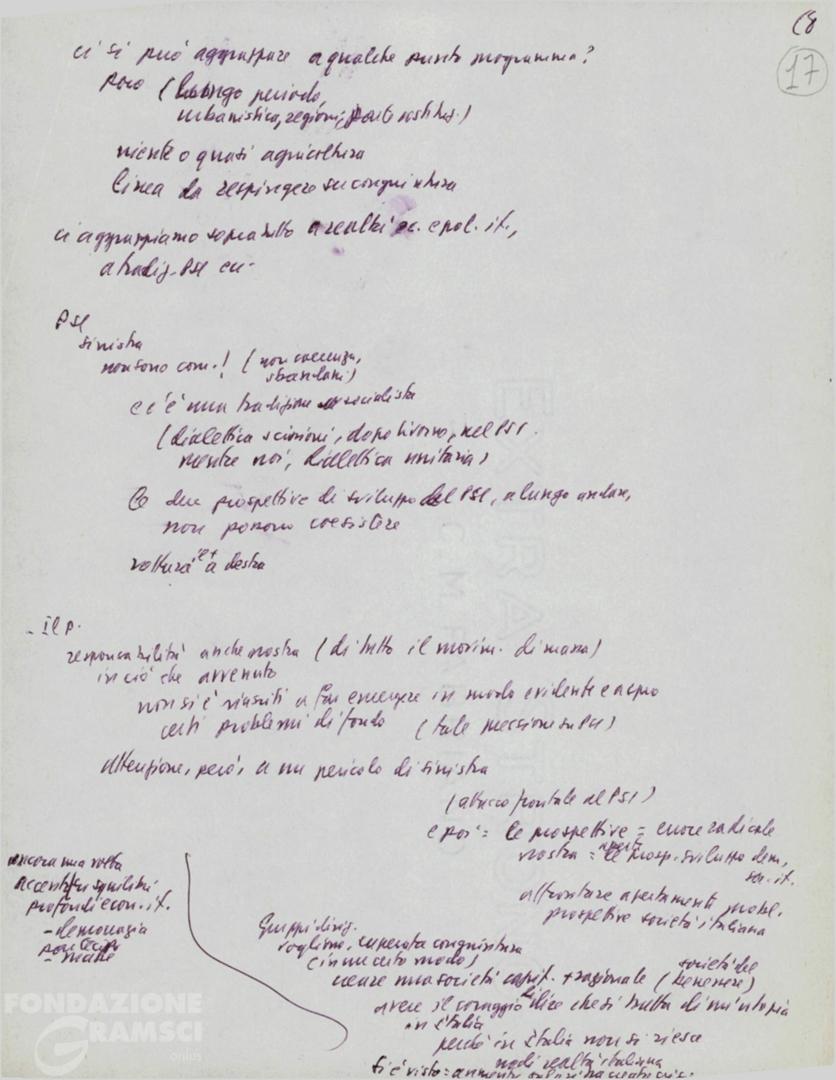 18
17
ci si può aggrappare a qualche punto programma?
poco (lungo periodo,
urbanistica, regioni,
niente o quasi agricoltura
linea da respingere su congiuntura
ci aggrappiamo soprattutto a realtà ec. e pol. it.,
a tradiz. PSI
PSI
sinistra
non sono com.! (non coerenza,
sbandam.)
c'è una tradizione socialista
(dialettica scissioni, dopo Livorno, nel PSI.
mentre noi, dialettica unitaria)
le due prospettive di sviluppo del PSI, a lungo andare,
non possono coesistere
rottura a destra
- Il p.
responsabilità anche nostra (di tutto il movim. di massa)
in ciò che avvenuto
non si è riusciti a far emergere in modo evidente
certi problemi di fondo (tale pressione su PSI)
attenzione, però, a un pericolo di sinistra
(attacco frontale al PSI)
e poi = le prospettive = radicale
nostra = le prosp. sviluppo dem.,
soc. it.
affrontare apertamente probl.
prospettive società italiana
ancora una volta
squilibri
profondi econ. it.
- democrazia
Gruppi dirig.
vogliono, superata congiuntura
(in un certo modo)
creare una società capit. + razionale (società del
benessere)
avere il coraggio di dire che si tratta di un'utopia
in Italia
perché in Italia non si riesce
nodi realtà italiana
si è visto = aumento salari
FONDAZIONE
GRAMSCI
onlus